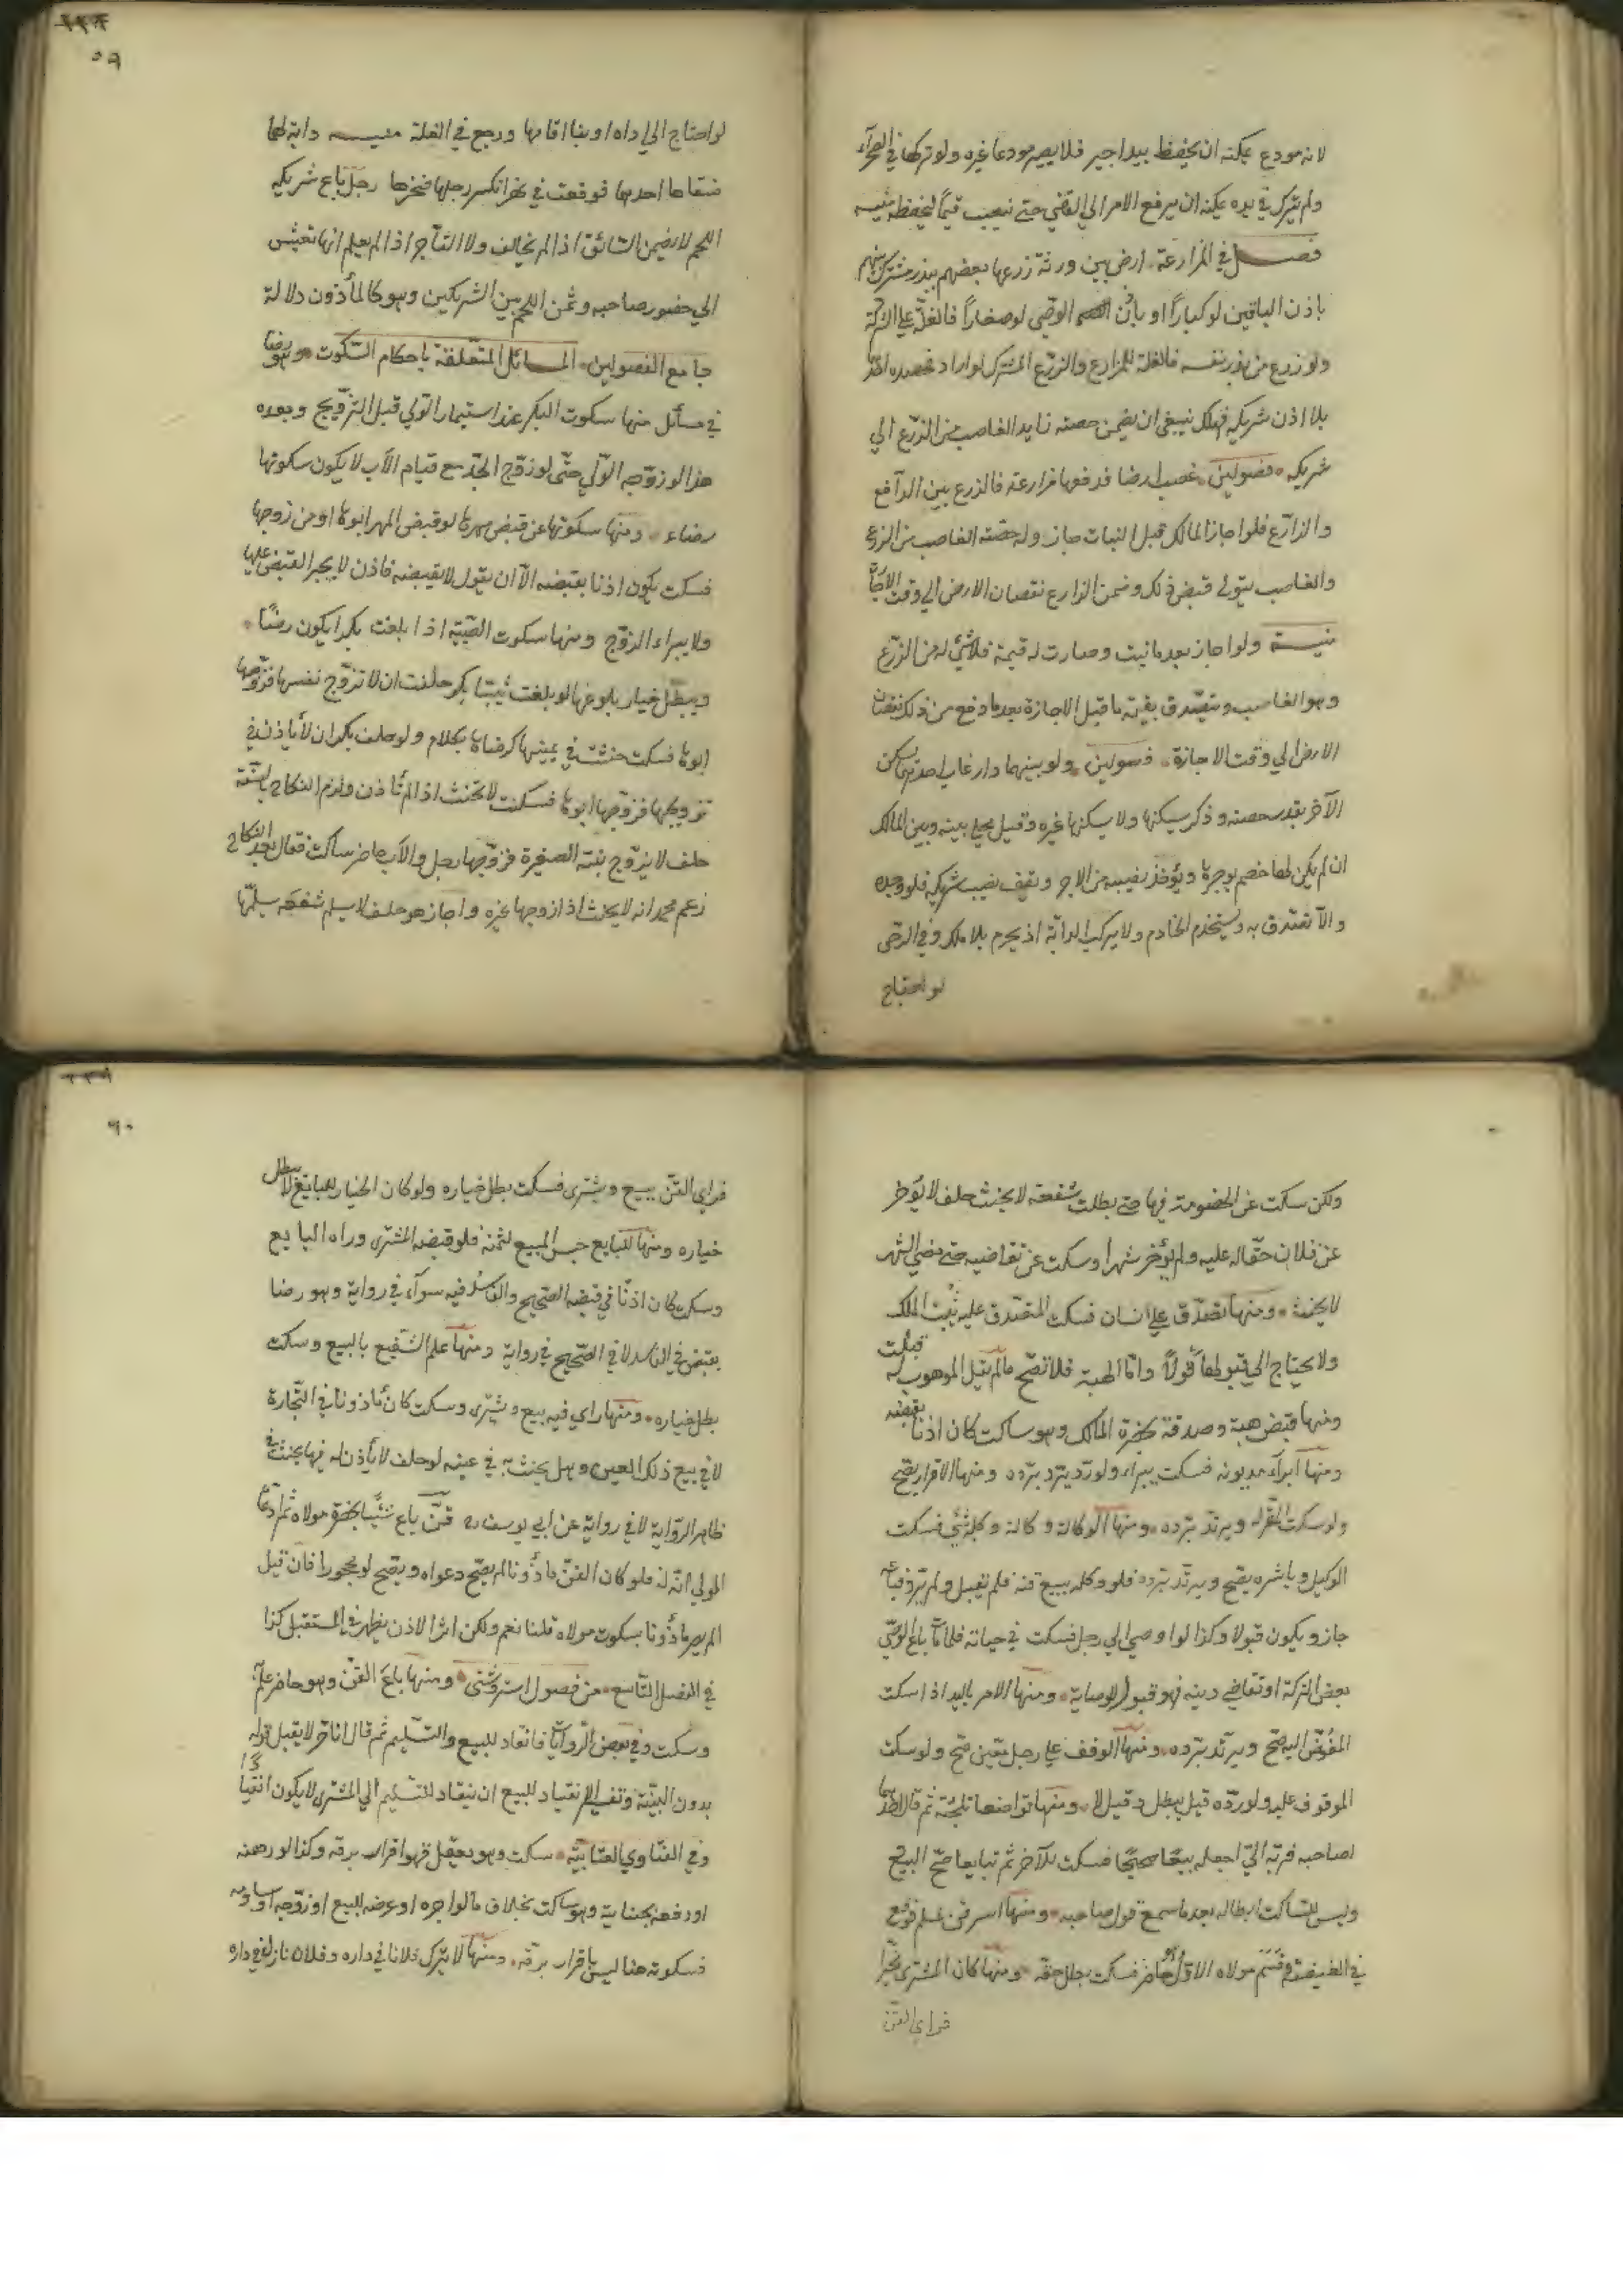 لانه مودع يمكنه ان يحفظ بيد اجير فلا يصير مودعا غيره ولو تركها في الصحرآء
ولم يترك في يده يمكنه ان يرفع الامر الي القاضي حتى ينصب قيمًا ليحفظه منيــه
فصــل في المزارعة. ارض بين ورثة زرعها بعضهم ببذر مشترك بينهم
باذن الباقين لو كبارًا او باذن الوصّي لو صغارًا فالغلّة علي الشركة
ولو زرع من بذر نفسه فالغلة للمزارع والزرّع المشترك لو اراد حصده احدهما
بلا اذن شريكه فهلك ينبغي ان يضمن حصته زايد الغاصب من الزرّع الي
شريكه. فصولين. غصب ارضا فدفعها مزارعة فالزرع بين الدآفع
والزارّع فلو اجاز المالك قبل النبات جاز وله حصّته الغاصب من الزرع
والغاصب يتولى قبض ذلك وضمن الزارع نقصان الارض الي وقت الاجازة
منيــة ولو اجاز بعد ما نبت وصارت له قيمة فلا شئ له من الزرّع
وهو الغاصب ويتصّدق بقيته ما قبل الاجازة بعد ما دفع من ذلك نقصان
الارض الي وقت الاجازة. فصولين. ولو بينهما دار غاب احدهما يسكن
الآخر بقدر حصته وذكر يسكنها ولا يسكنها غيره وقيل يخلي بينه وبين المالك
ان لم يكن لها خصم يوجرها ويؤخذ نصيبه من الاجر ويقف نصيب شريكه فلو وجده
والآ تصّدق به ويستخدم الخادم ولا يركب الدابّة اذ يحرم بلا ملك وفي الرحى
لو احتاج
٥٩
لو احتاج الي اداه او بنا اقامها ورجع في الغلة منيــه دابة لهما
سقاها احدهما فوقعت في نهر انكسر رجلها فنحرها رجل باع شريكه
اللحم لا يضمن السّائق اذا لم يخالف ولا التآجر اذا لم يعلم انها تعيش
الي حضور صاحبه وثمن اللحم بين الشريكين وهو كالمأذون دلالة
جامع الفصولين. المسائل المتعّلقة باحكام السّكوت. وهو رضا
في مسائل منها سكوت البكر عند استيمار الوّلي قبل التزّويج وبعده
هذا لو زوّجه الوّلي حتّى لو زوّج الجدّ مع قيام الآب لا يكون سكوتها
رضاء. ومنها سكوتها عن قبض مهرها لو قبض المهر ابوها او من زوجها
فسكت يكون اذنا بقبضه الاّ ان يقول لا يقبضه فاذن لا يجبر القبض عليها
ولا يبراء الزوّج ومنها سكوت الصّبيّة اذا بلغت بكرا يكون رضًا.
ويبطّل خيار بلوغها لو بلغت ثيّبًا بكر حلفت ان لا تزوّج نفسها فزوّجها
ابوها فسكت حنثت في يمينها كرضاها بكلام ولو حلف بكر ان لا ياذن في
تزويجها فزوّجها ابوها فسكت لا تحنث اذا لم تأذن ولزم النكاح بالسّنة
حلف لا يزوّج بنته الصغيرة فزوّجها رجل والآب حاضر ساكت فقال بعد النكاح
زعم محمد انه لا يحنث اذا زوجها غيره واجاز هو حلف لا يسلم شفعته سلمها
ولكن سكت عن الخصومة فيها حتى بطلت شفعته لا يحنث حلف لا يؤخر
عن فلان حقّا له عليه ولم يؤخر شهرًا وسكت عن تقاضيه حتى مضي الشهر
لا يحنث. ومنها تصدّق علي انسان فسكت المتصّدق عليه ثبت الملك
ولا يحتاج الي قبولها قولًا وامّا الهبة فلا تصّح ما لم يقل الموهوب له قبلت
ومنها قبض هبة وصدقة بحضرة المالك وهو ساكت كان اذنا بقبضه
ومنها ابرآء مديونه فسكت يبراء ولو ردّ يرتد بردّه ومنها الاقرار يصّح
ولو سكت المقرّ له ويرتد بردّه. ومنها الوكالة وكاله وكله بشئ فسكت
الوكيل وباشره يصّح ويرتّد بردّه فلو وكله ببيع قنه فلم يقبل ولم يردّ فباعه
جاز ويكون قبولا وكذا لو اوصي الي رجل فسكت في حياته فلما مآت باع الوصّي
بعض التركة او تقاضي دينه فهو قبول للوصاية. ومنها الامر باليد اذا سكت
المفوّض اليه صّح ويرتّد بردّه. ومنها الوقف علي رجل معّين صّح ولو سكت
الموقوف عليه ولو ردّه قيل يبطل وقيل لا. ومنها تواضعا تلجئة ثم قال احدهما
لصاحبه قد بدا لي اجعله بيعًا صحيحًا فسكت الآخر ثم تبايعا صّح البيع
وليس للسّاكت ابطاله بعد ما سمع قول صاحبه. ومنها اسر قن لمسلم فوقع
في الغنيمة وقسّم مولاه الاوّل حاضر فسكت بطل حقه. ومنها كان المشتري مخيّرا
فراي القنّ
٦٠
فراي القنّ يبيع ويشتري فسكت بطل خياره ولو كان الخيار للبايع لا يبطل
خياره ومنها للبايع حبس المبيع لثمنه فلو قبضه المشتري وراه البايع
وسكت كان اذنًا في قبضه الصّحيح والفاسد فيه سوآء في رواية وهو رضا
بقبض في الفاسد لا في الصّحيح في رواية ومنها علم الشّفيع بالبيع وسكت
بطل خياره. ومنها راي قنه يبيع ويشترى وسكت كان مأذونا في التّجارة
لا في بيع ذلك العين وهل يحنث به في يمينه لو حلف لا يأذن له فيها يحنث في
ظاهر الرّواية لا في رواية عن ابي يوسف ره قنّ باع شيئًا بحضرة مولاه ثم ادّعا
المولي انّه له فلو كان القنّ مأذونا لم يصّح دعواه ويصّح لو محجورا فان قيل
الم يصر مأذونا بسكوت مولاه قلنا نعم ولكن اثر الاذن يظهر في المستقبل كذا
في الفصل التّاسع. من فصول استروشنى. ومنها باع القنّ وهو حاضر علم
وسكت وفي بعض الرّوايات فانقاد للبيع والتّسليم ثم قال انا حر لا يقبل قوله
بدون البيّنة وتفسير الانقياد للبيع ان ينقاد للتسليم الي المشتري لا يكون انقيادًا
وفي الفتاوي العتّابيّة. سكت وهو يعقل فهو اقرار برقه وكذا لو رهنه
او دفعه بجناية وهو ساكت بخلاف ما لو اجره او عرضه للبيع او زوّجه او ساومه
فسكوته هنا ليس باقرار برقّه. ومنها لا يترك فلانا في داره وفلان نازل في داره